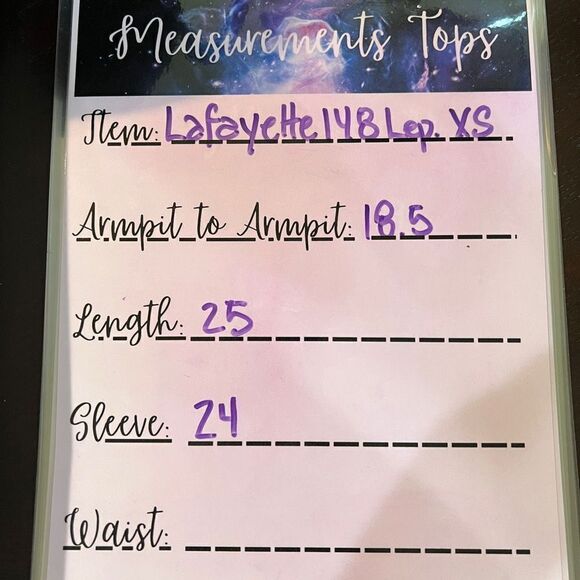 Measurements Tops
Item: Lafayette 148 Lep. XS
Armpit to Armpit: 18.5
Length: 25
Sleeve: 24
Waist: